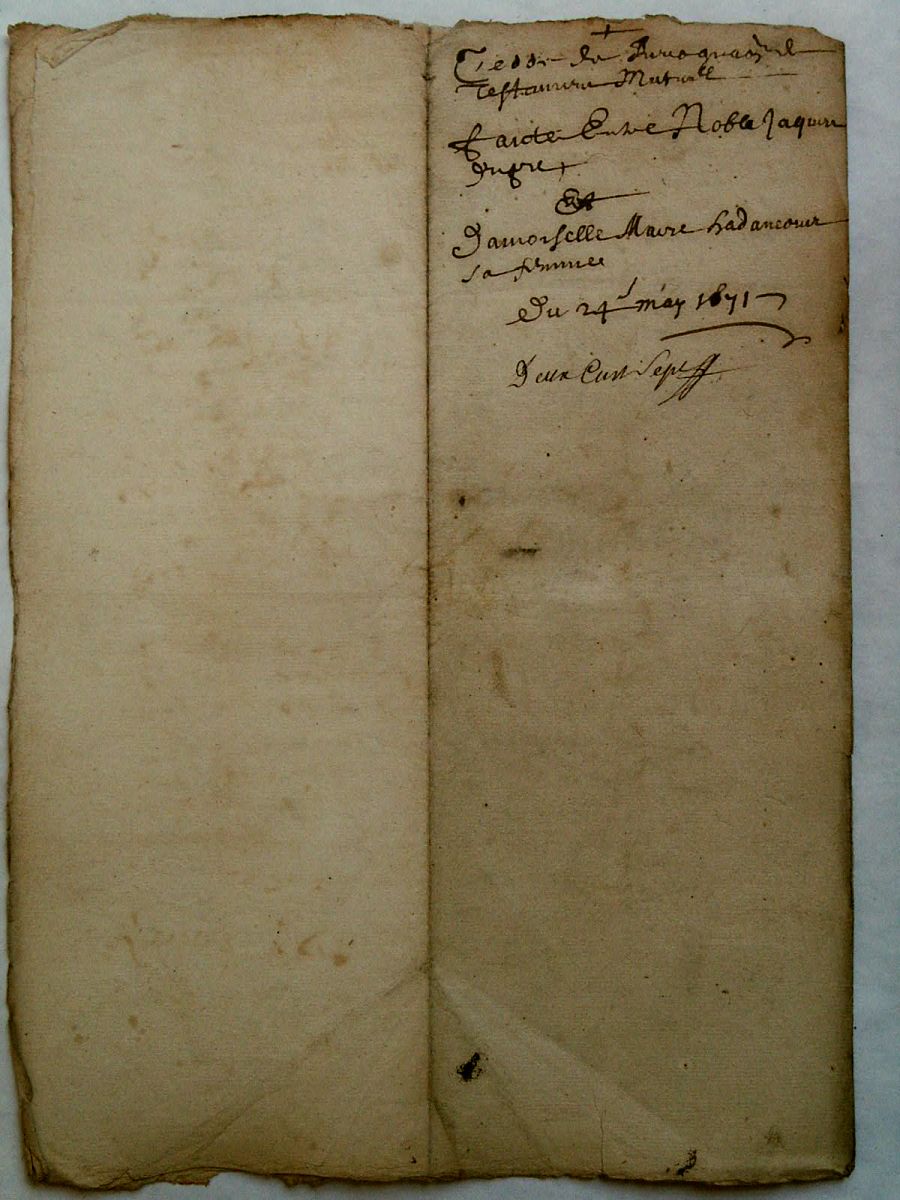 de
Testament Mutuel
faicte Entre Noble Jaques
dupre
Et
Damoiselle Marie hadancour
sa femme
Du 24 may 1671
Deux Cent Sept